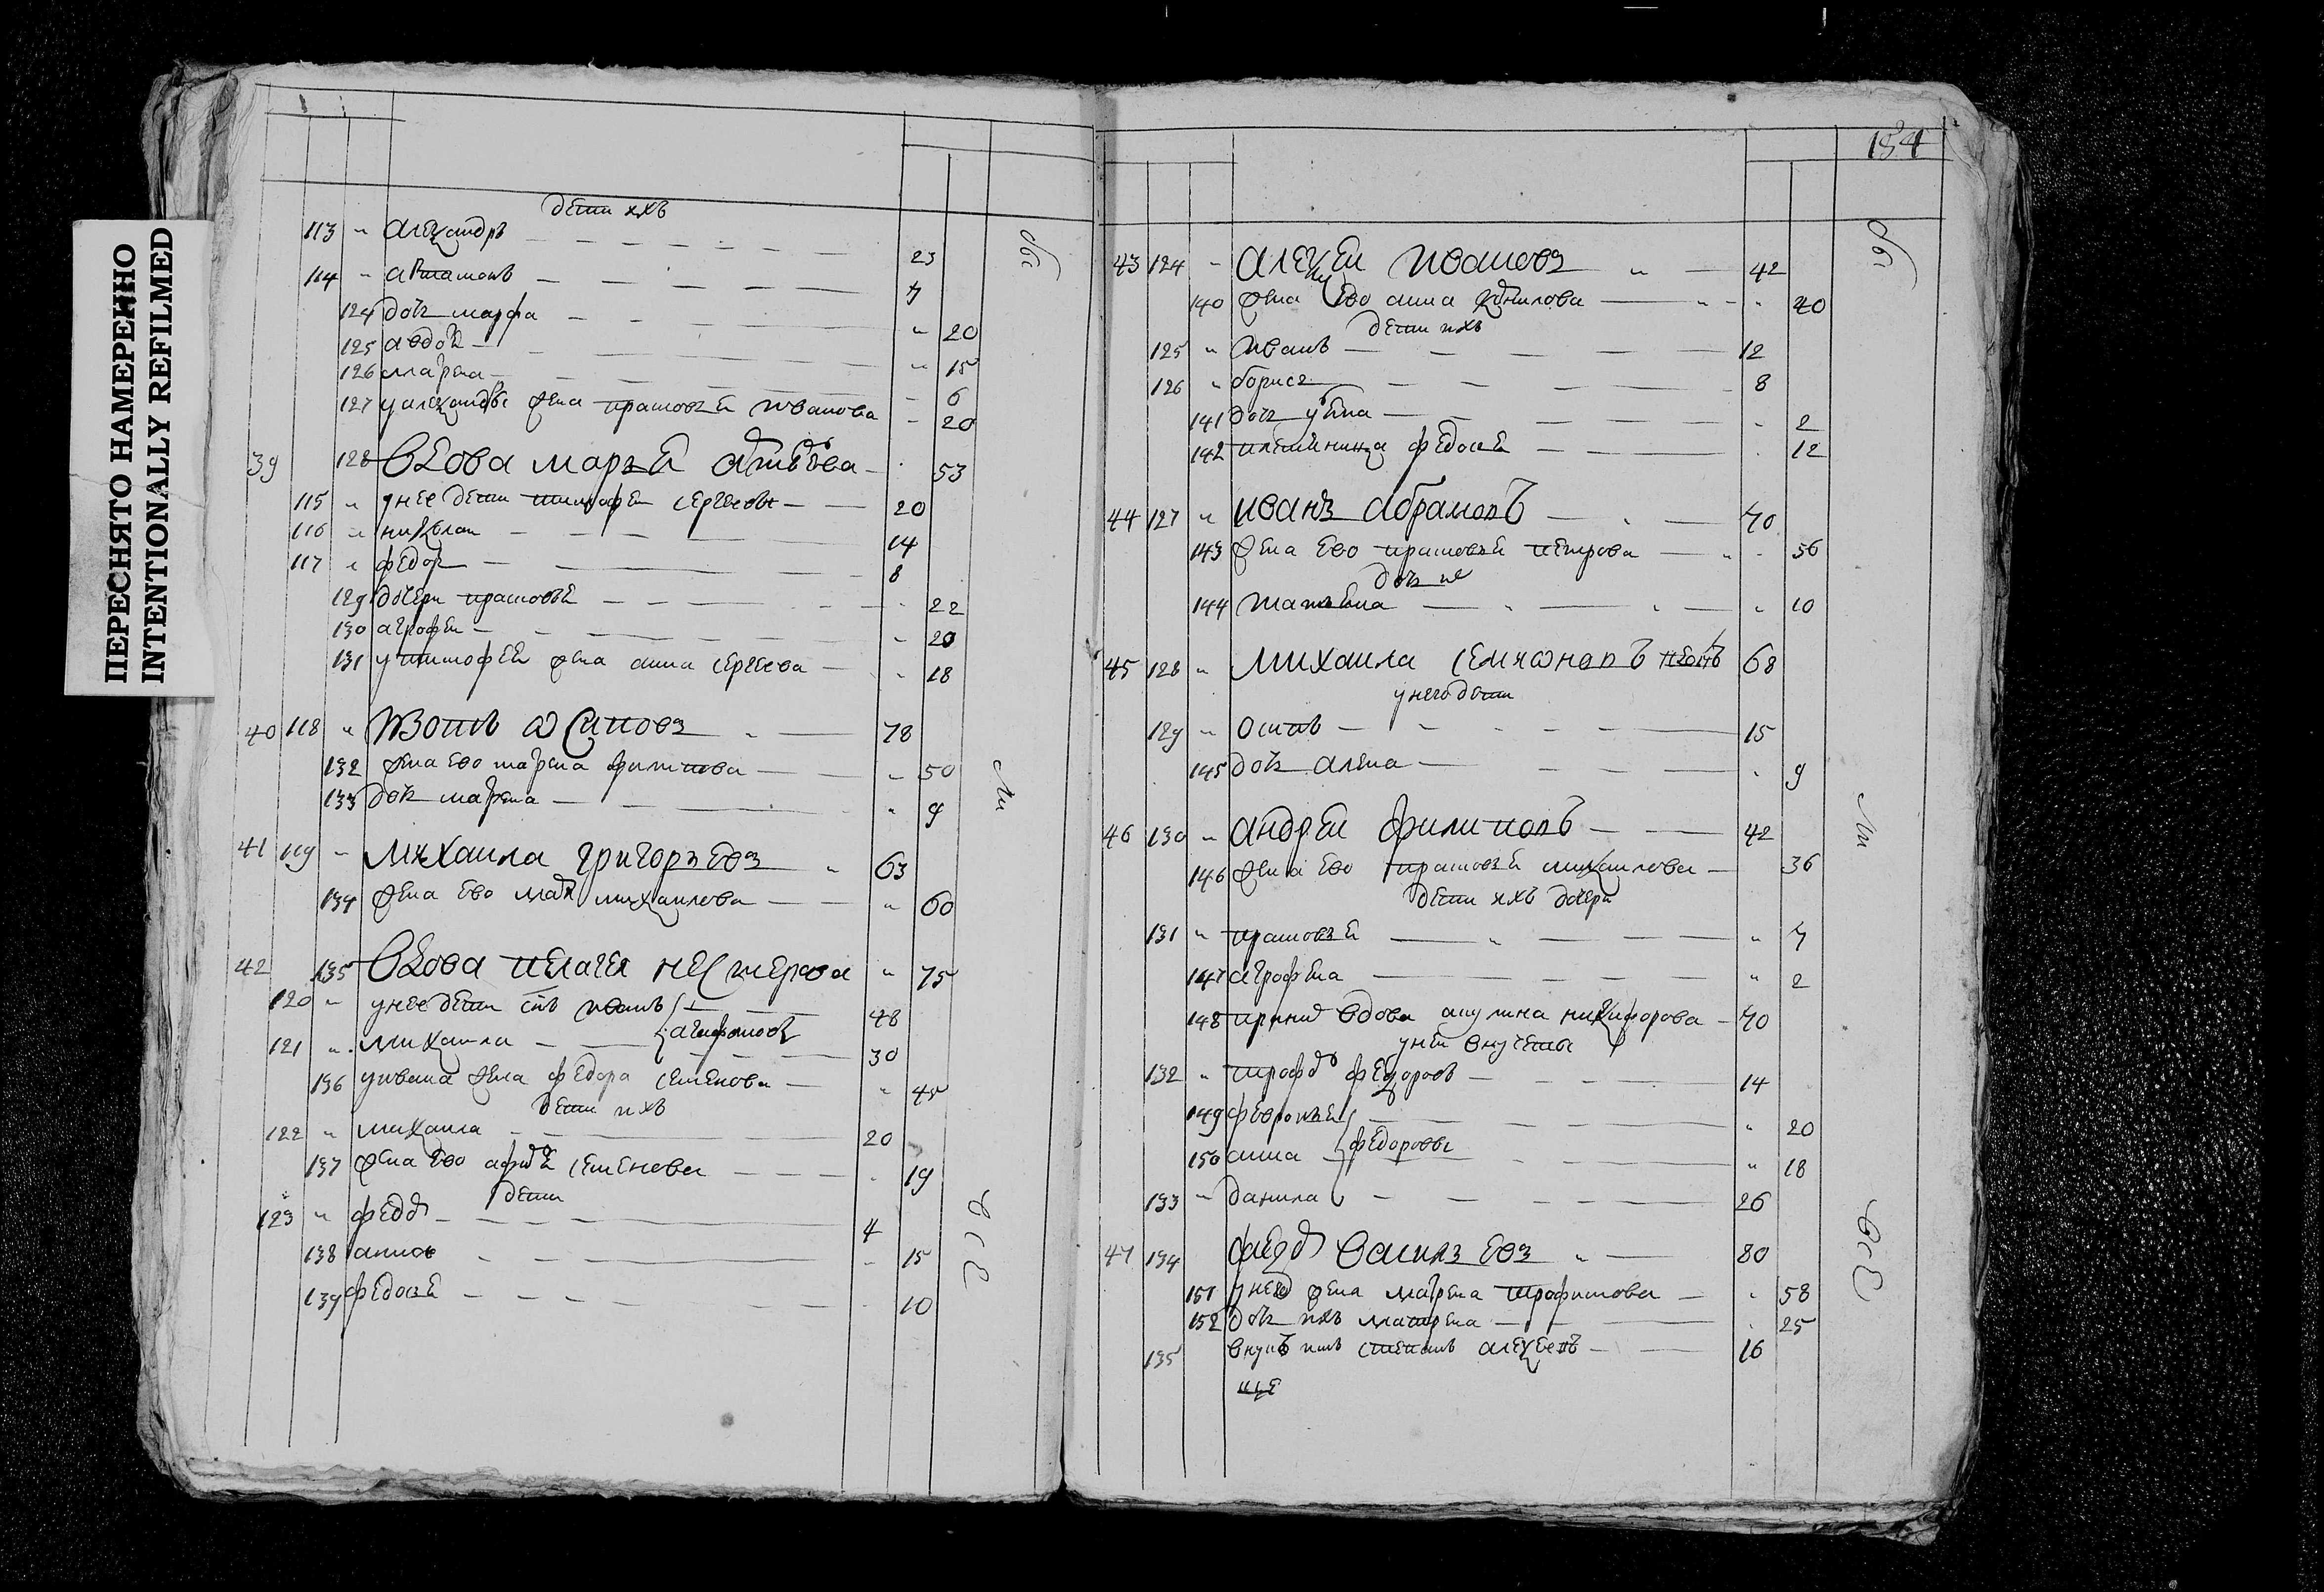 ПЕРЕСНЯТО НАМЕРЕННО
INTENTIONALLY REFILMED
дети ихъ
113 " александръ 23
114 " артамонъ 7
124 дочь марфа " 20
125 авдотя " 15
126 марена " 6
127 у александра жена прасковья иванова " 20
39 128 вдова марья 53
115 " у нее дети тимофеи сергеевы 20
116 " николаи 14
117 " федоръ 8
129 дочери прасковья " 22
130 аграфена " 20
131 у тимофея жена анна сергеева " 18
40 118 " изотъ осиповъ " 78
132 жена ево марена филипова " 50
133 дочь марена " 9
41 119 " михаила григорьевъ " 63
134 жена ево михаилова " 60
42 135 вдова пелагея нестерова " 75
120 " у нее дети иванъ 48
121 " михаила агафоновы 30
136 у ивана жена федора семенова " 45
дети ихъ
122 " михаила 20
137 жена ево семенова " 19
дети
123 " федоръ 4
138 анисья " 15
139 федосья 10
об
ли
все
184
43 124 " алексеи ивановъ " 42
140 жена ево анна данилова " " 40
дети ихъ
125 " иванъ 12
126 " борисъ 8
141 дочь " 2
142 племянница федосья " 12
44 127 " иванъ абрамовъ 70
143 жена ево прасковья петрова " 56
дочь их
144 татьяна " 10
45 128 " михаила семионовъ вдовъ 68
у него дети
129 " осипъ 15
145 дочь алена " 9
46 130 " андреи филиповъ 42
146 жена ево прасковья михаилова 36
дети ихъ дочери
131 " прасковья " 7
147 аграфена " 2
148 при них вдова акулина никифорова 70
у неи внучеты
132 " трофимъ федоровъ 14
149 февронья " 20
150 анна федоровы " 18
133 " данила 26
47 134 федоръ васильевъ " 80
151 у него жена марена трофимова " 58
152 дочь ихъ матрена " 25
135 внукъ ихъ степанъ алексеевъ 16
ище
об
ли
все